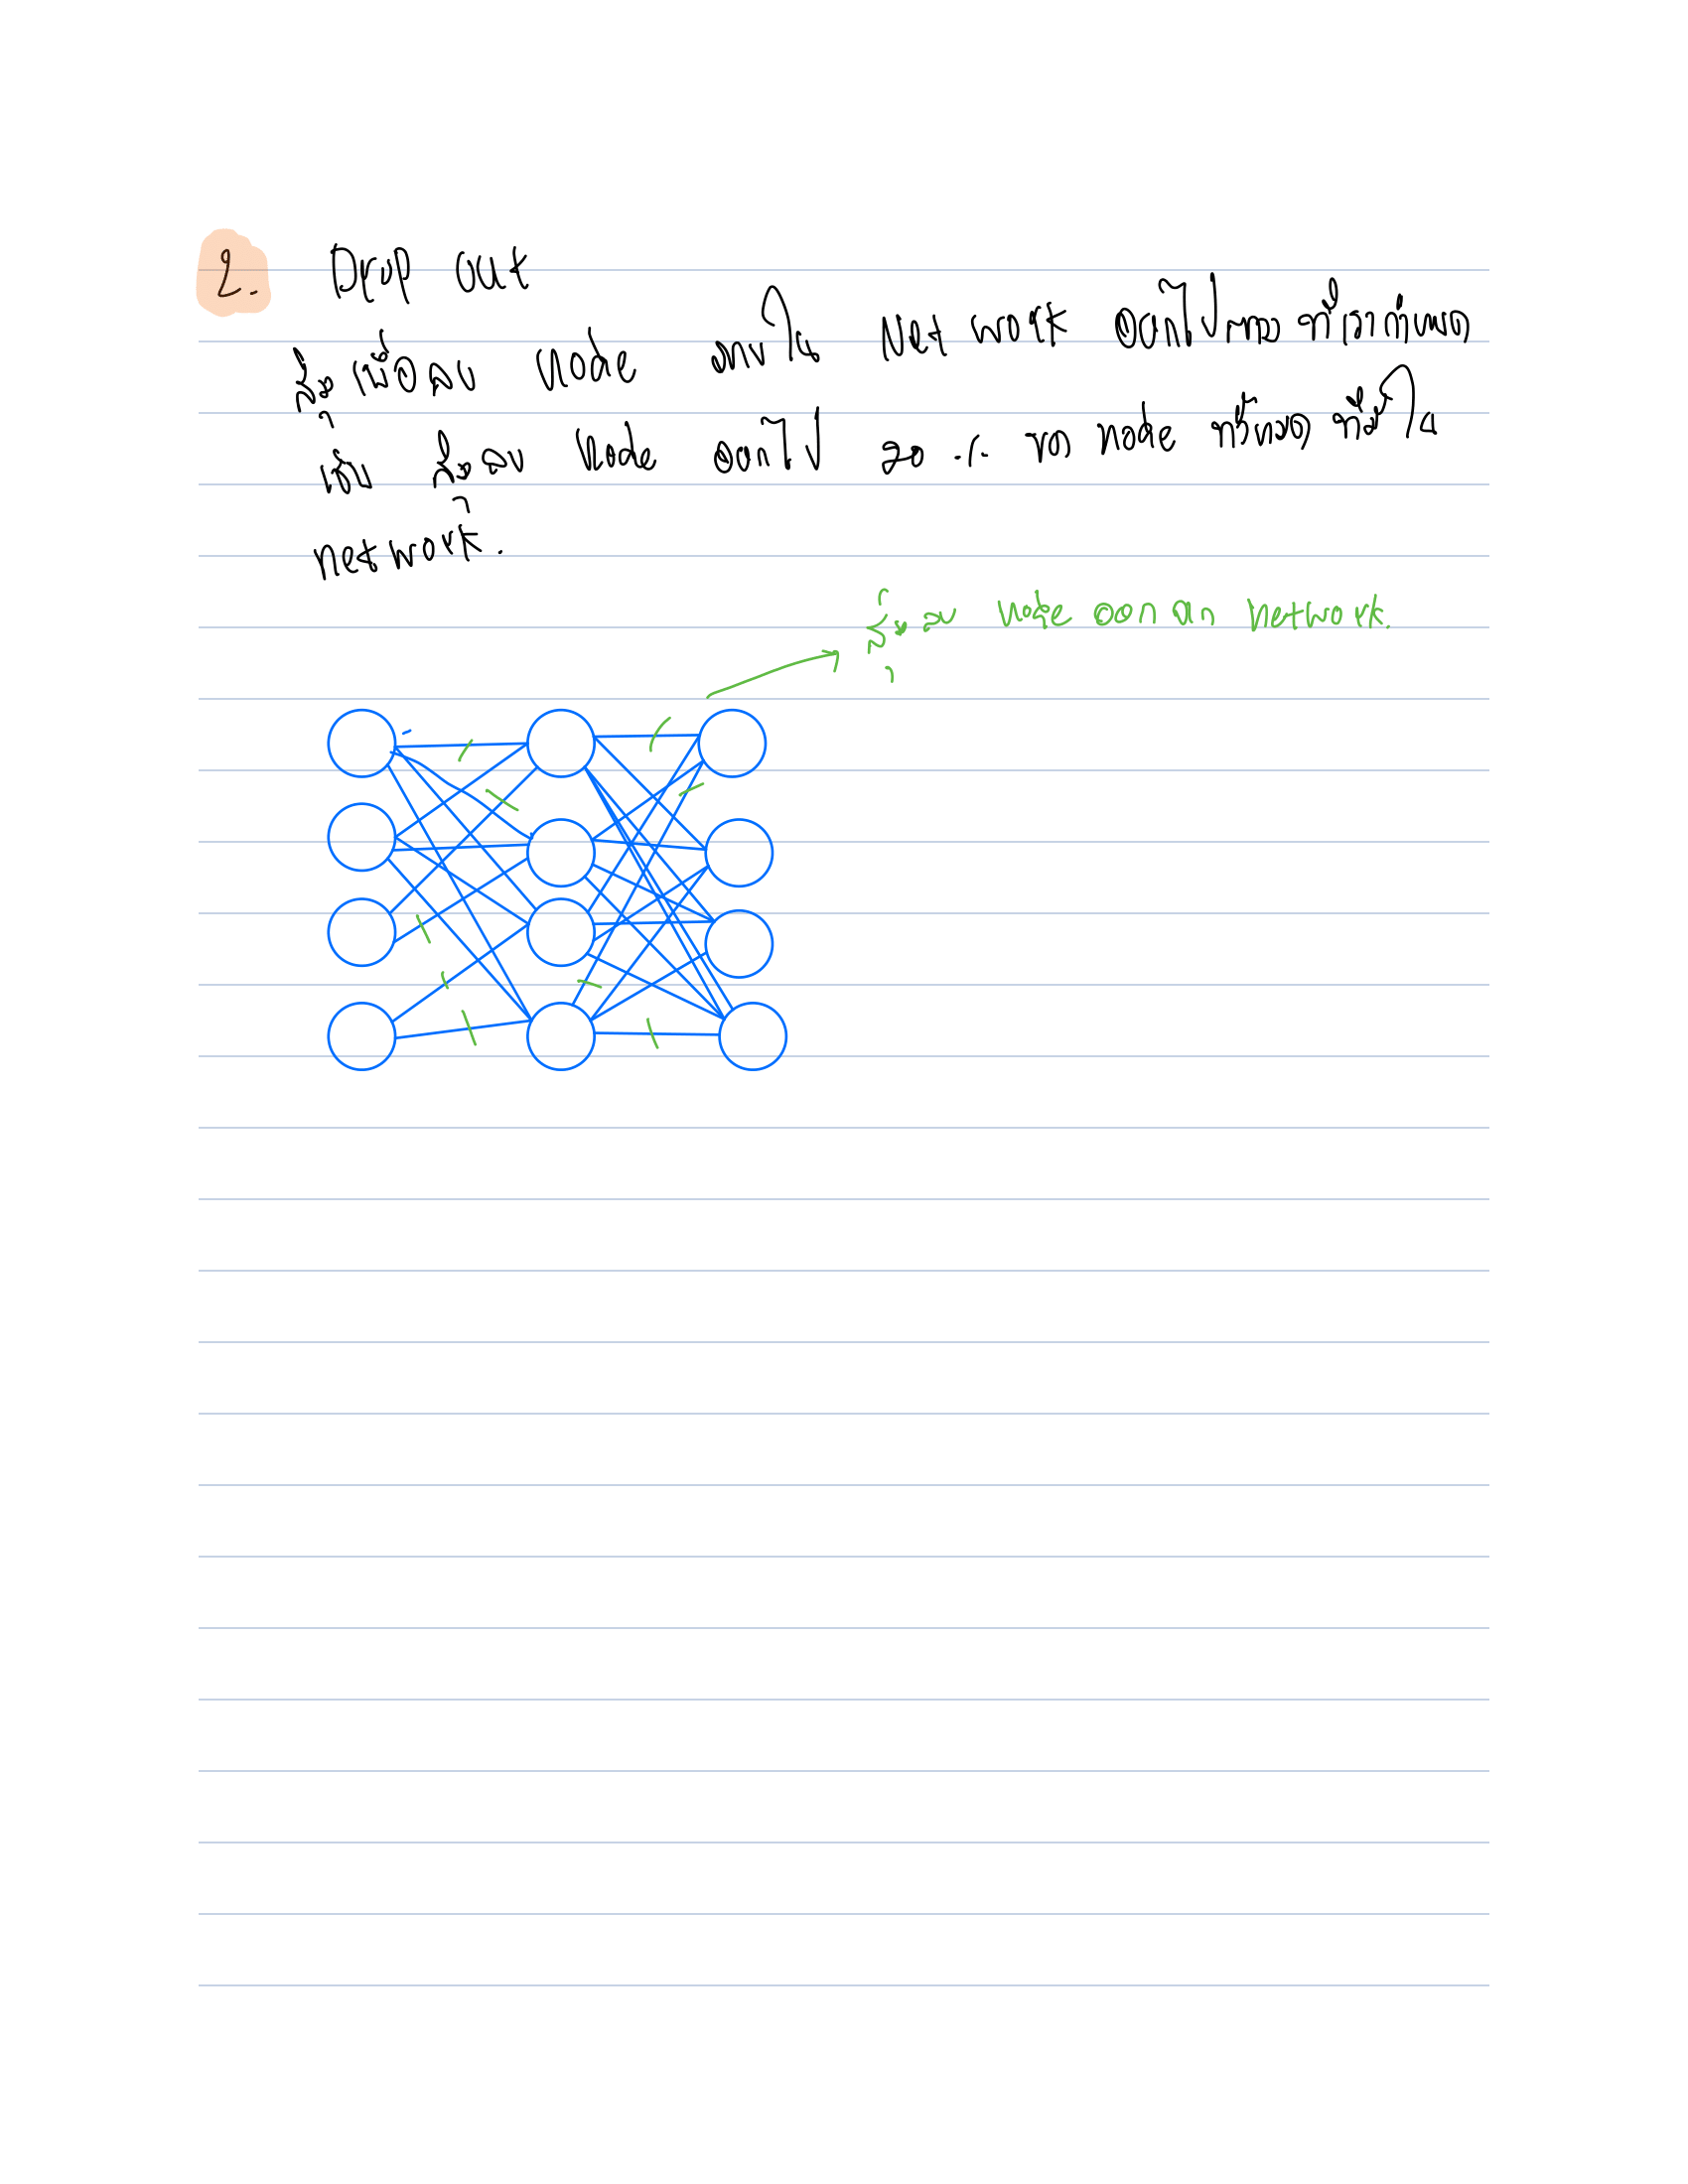 2. Drop out
สุ่มเพื่อลบ node ภายใน Network ออกไปตามที่เรากำหนด
เช่น สุ่มลบ node ออกไป 20 % ของ node ทั้งหมด ที่มีใน
network.
สุ่มลบ node ออกจาก network.